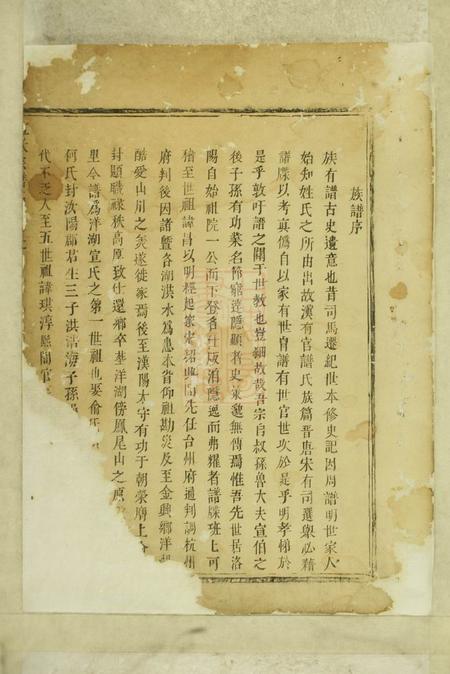 族譜序
族有譜古史遺意也昔司馬遷紀世本修史記因周譜明世家人
始知姓氏之所由出故漢有官譜氏族篇晉唐宋有司選舉必藉
譜牒以考真僞自以家有世胄譜有世官世次於是乎明孝悌於
是乎敦吁譜之關于世教也豈細故哉吾宗自叔孫魯大夫宣伯之
後子孫有功業名節顯達隱顯者史策無傳焉惟吾先世居洛
陽自始祖院一公而下登者仕版泊隱逸而弗耀者譜牒班班上可
稽至世祖諱昌以明經起家宋紹興間先任台州府通判調杭州
府判後因諸暨各湖洪水為患本省仰祖勘災及至金興鄉洋湖
酷愛山川之美遂徙家焉後至漢陽太守有功于朝榮膺上
封顯職祿秩高原致仕還鄉卒塟洋湖傍鳳尾山之
里今譜為洋湖宣氏之第一世祖也娶俞氏
何氏封汝陽郡君生三子洪浩海子孫
代不乏人至五世祖諱琪淳熙間官